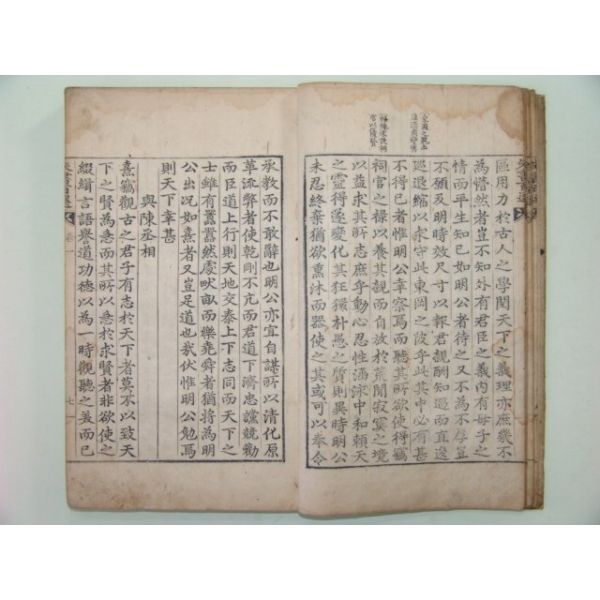 區用力於古人之學閱天下之義理亦庶幾不
為懵然者豈不知外有君臣之義內有母子之
情而平生知已如明公者待之又為不厚豈
不願及明時效尺寸以報君親酬知遇而直逡
巡退縮以求守此東岡之陂乎此其中必有甚
不得已者惟明公幸察焉而聽其所欲使得竊
祠官之祿以養其親而自放於荒閒寂寞之境
以益求其所志庶乎動心忍性涵泳中和賴天
之靈得遂變化其狂猥朴愚之質則異時明公
未忍終棄猶欲熏沐而器使之其或可以奉令
承教而不敢辭也明公亦宜自謀所以清化原
革流弊者使乾剛不亢而君道下濟忠讜競勸
而臣道上行則天地交泰上下志同而天下之
士雖有囂囂然處畎畝而樂堯舜者猶將為明
公出况如熹者又豈足道也哉伏惟明公勉焉
則天下幸甚
與陳丞相
熹竊觀古之君子有志於天下者莫不以致天
下之賢為急而其所以急於求賢者非欲使之
綴緝言語譽道功德以為一時觀聽之美而已
七